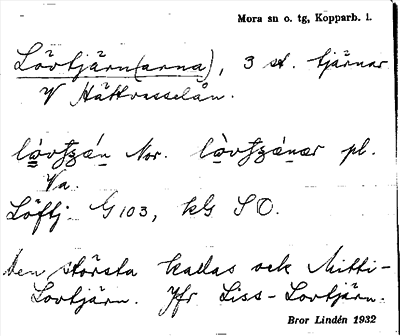 Mora sn o. tg, Kopparb. l.
Lövtjärn(arna), 3 st. tjärnar
V Hättvasselån.
Nor. pl.
Va.
Löftj. G 103, kG SO.
Den största kallas ock Mitti-
Lovtjärn. Jfr Liss-Lovtjärn.
Bror Lindén 1932